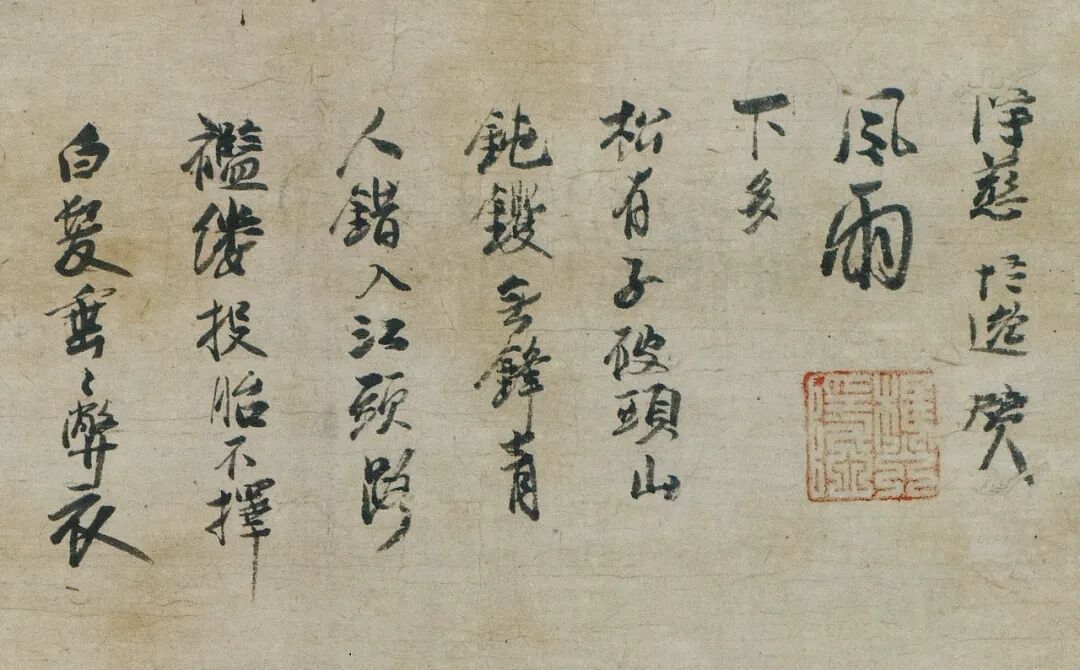 白髮垂〻弊衣
襤縷投胎不擇
人錯入江頭路
鈍钁無鋒青
松有子破頭山
下多
風雨
淨慈 贊